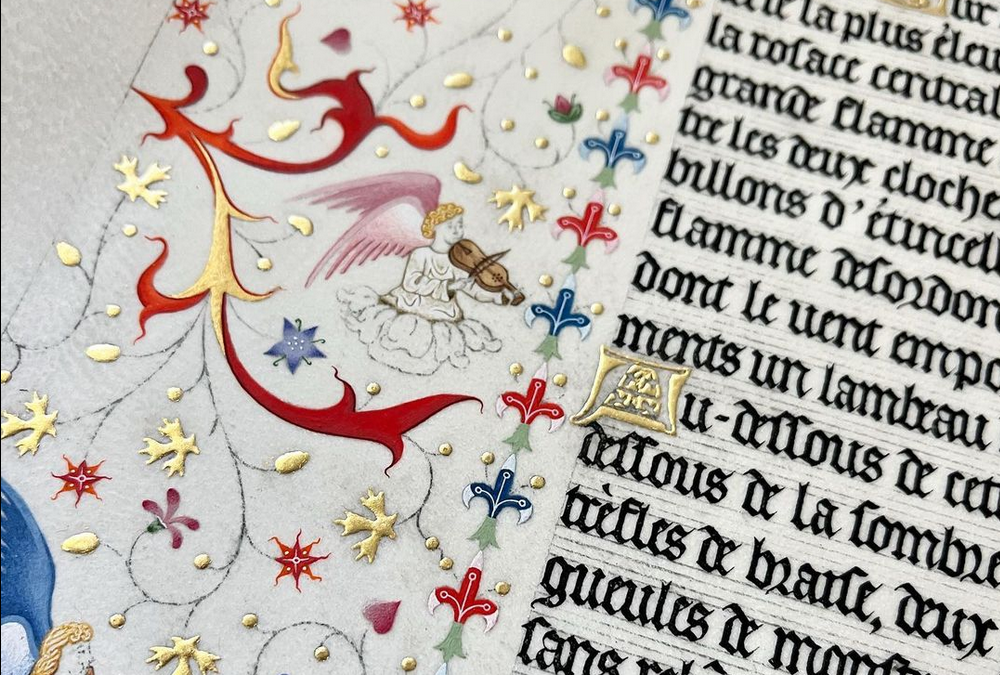 ur
erie la plus élev
la rosace central
grande flamme
tre les deux cloche
billons d'étincell
flamme désordon
dont le vent empo
ments un lambeau
Au-dessous de cet
dessous de la sombre
trèfles de braise, deux
gueules de monst
sans relâ